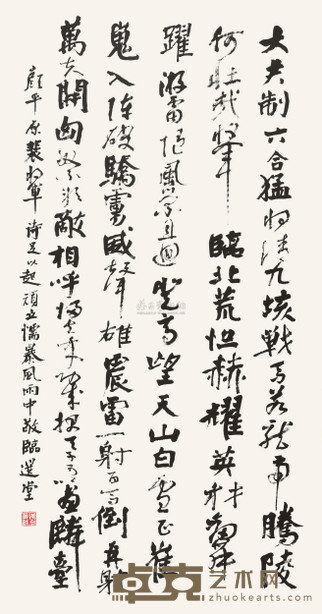 大君制六合猛將清九垓戰馬若龍虎騰陵
何壯哉將軍臨北荒恒赫耀英材劍舞
躍游雷隨風縈且迴登高望天山白雪正崔
嵬入陣破驕虜威聲雄震雷一射百馬倒再射
萬夫開匈奴不敢敵相呼歸去來功成報天子可以畫麟臺
顏平原裴將軍詩足以起頑立懦暴風雨中敬臨選堂
卓克艺术网
www.zhuokearts.com